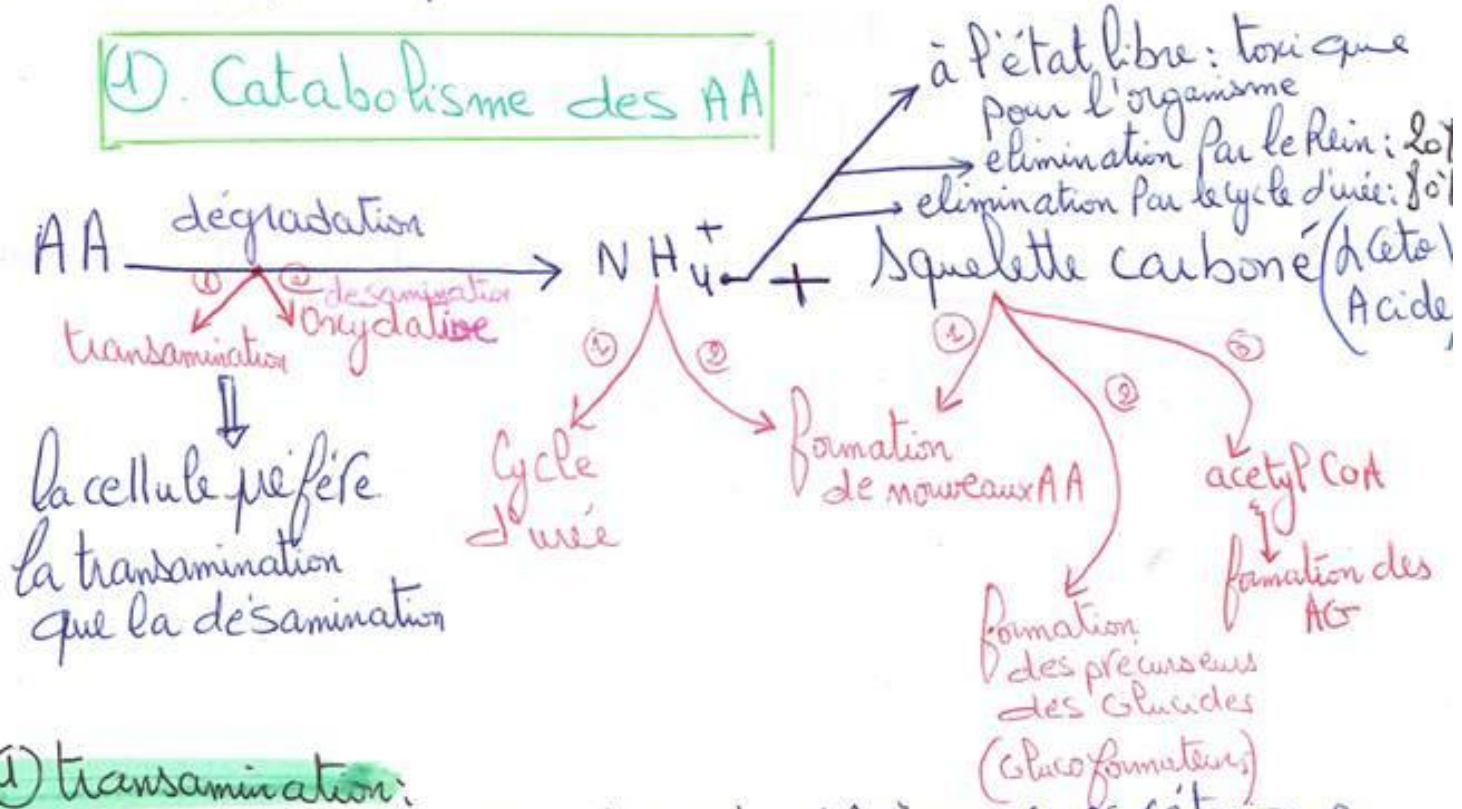 ① . Catabolisme des AA
à l'état libre : toxique
pour l'organisme
elimination Par le Rein : 20%
elimination Par le cycle d'urée : 80%
AA
dégradation
NH₄⁺
+
Squelette carboné (α Ceto
Acide
① transamination
② desamination
Oxydative
la cellule préfère
la transamination
que la désamination
①
Cycle
d'urée
②
①
formation
de nouveaux AA
②
formation
des précurseurs
des Glucides
(Glucoformateurs)
③
acetyl CoA
formation des
AG
① transamination :